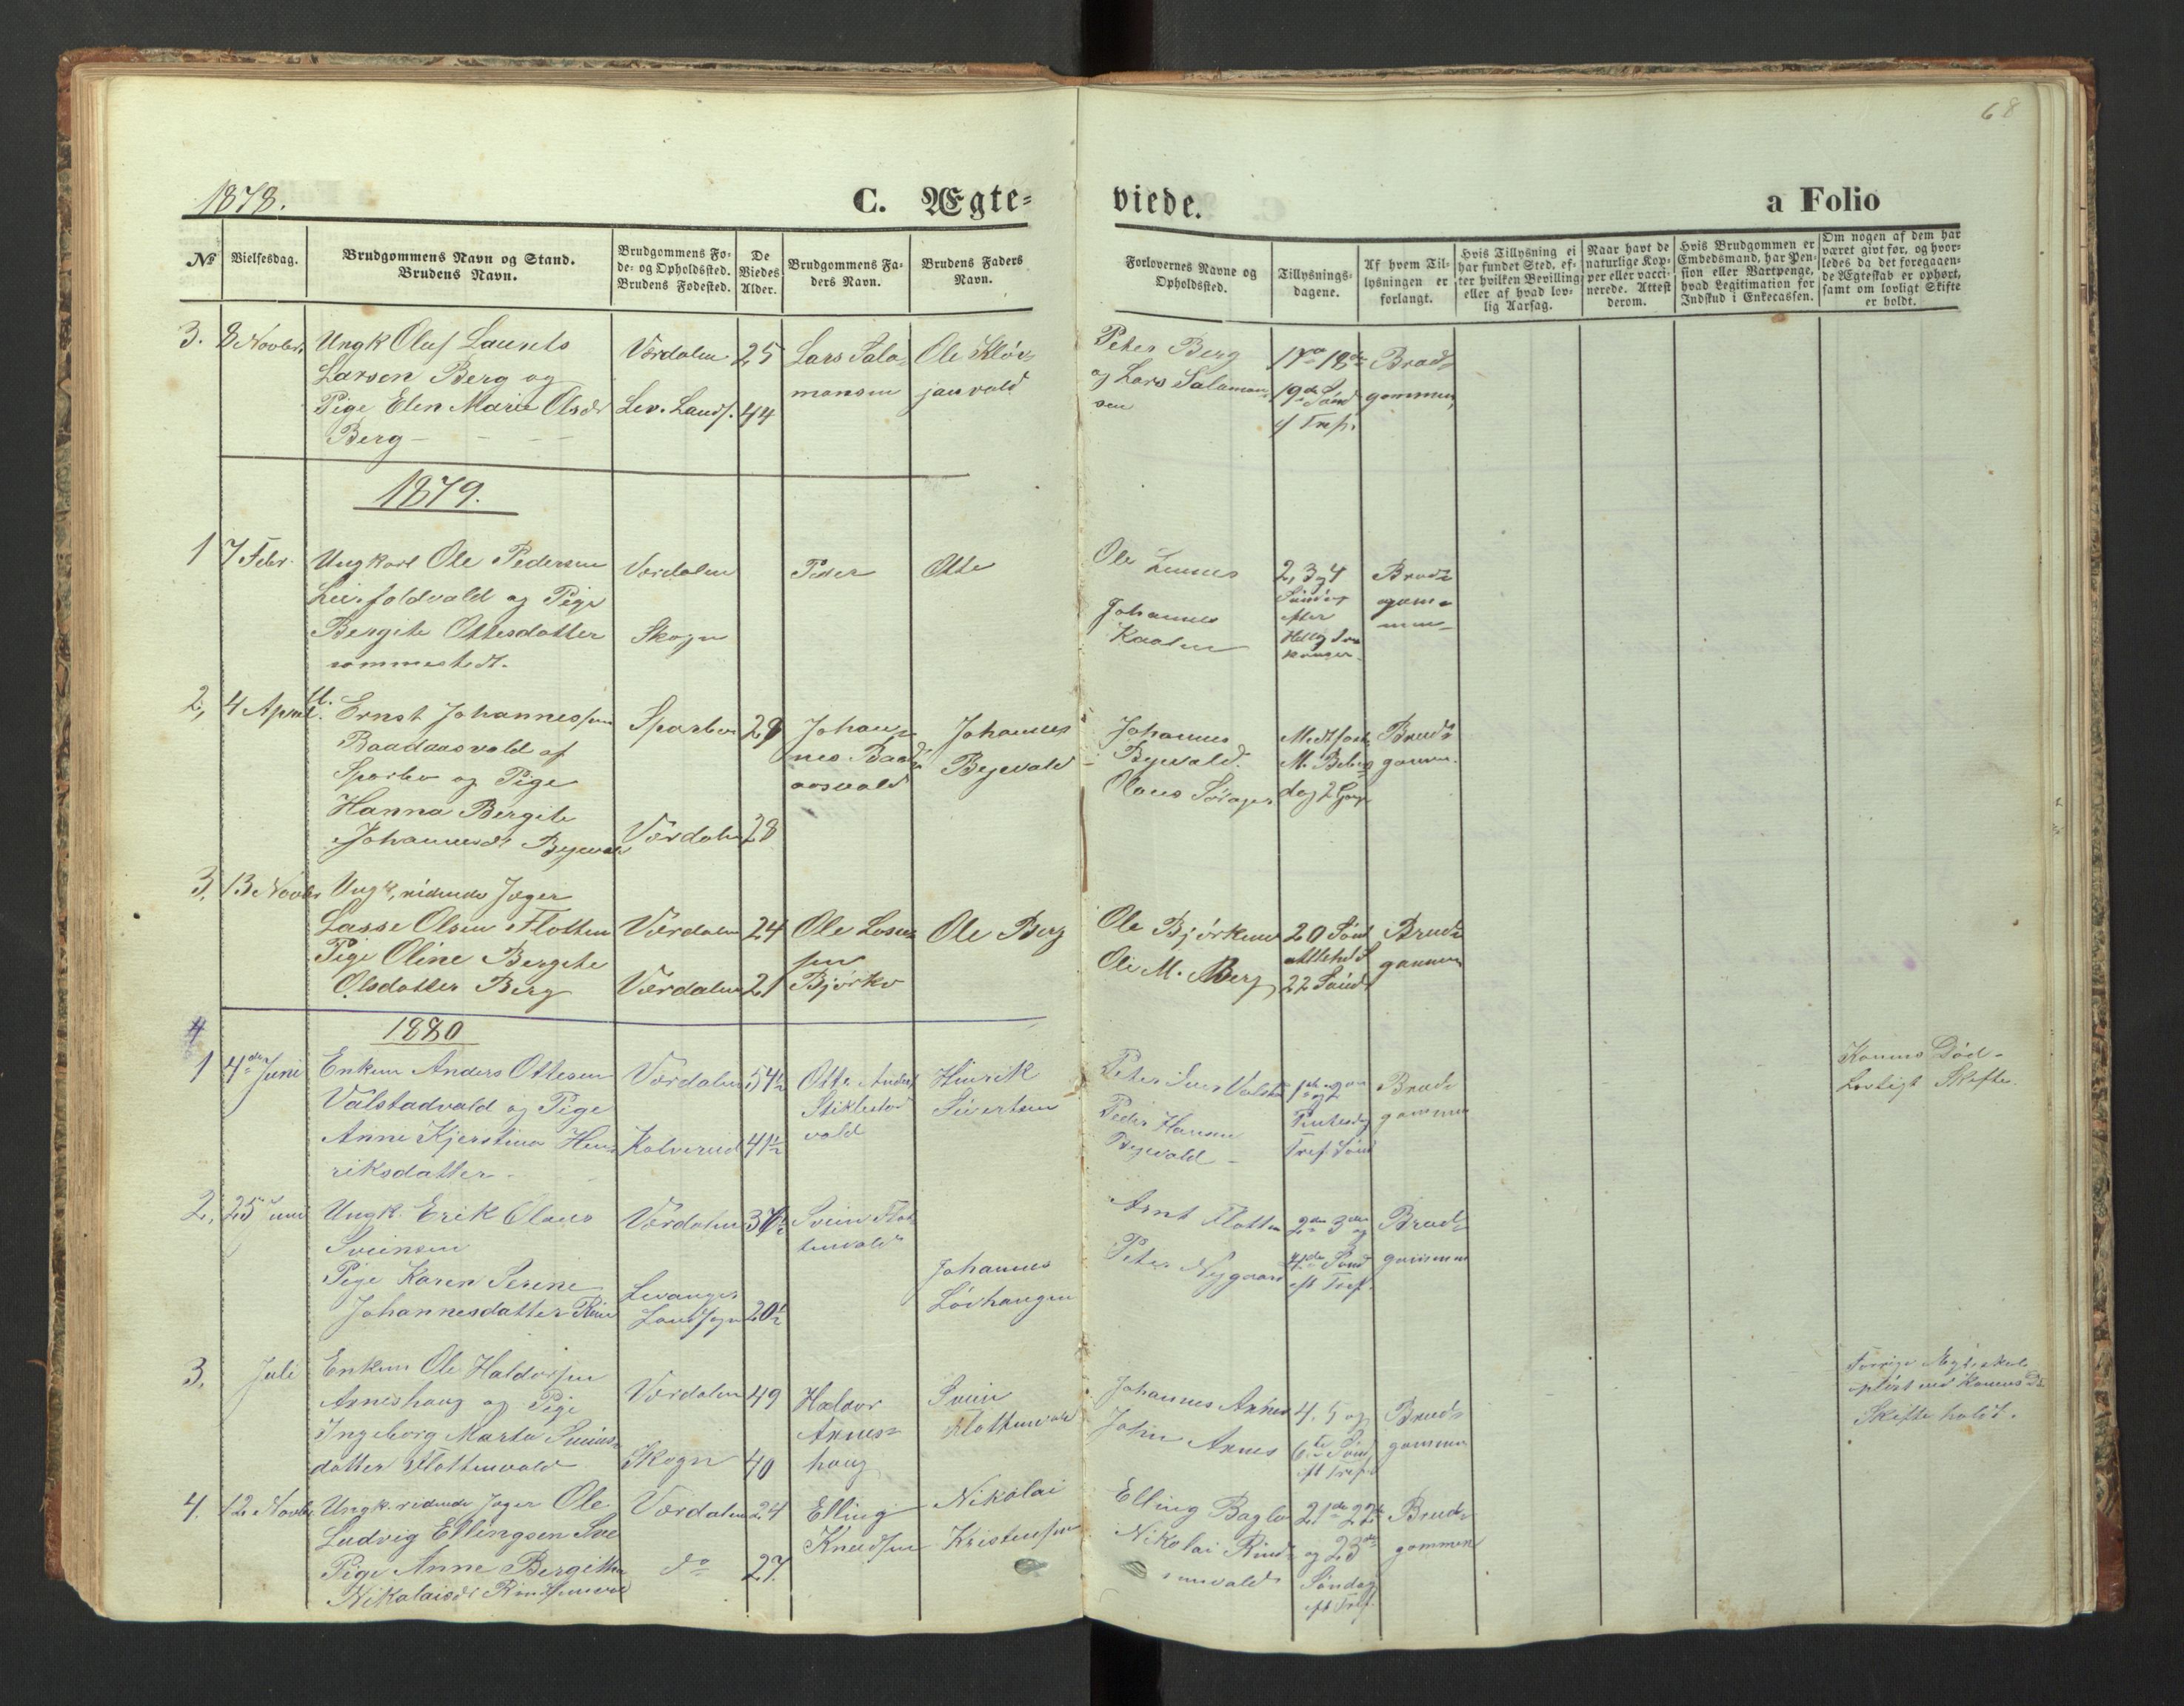 68
1878.
C. Ægte=
viede.
a Folio
№
Vielsesdag.
Brudgommens Navn og Stand.
Brudens Navn.
Brudgommens Fø-
de- og Opholdssted.
Brudens Fødested.
De
Viedes
Alder.
Brudgommens Fa-
ders Navn.
Brudens Faders
Navn.
Forlovernes Navne og
Opholdssted.
Tillysnings-
dagene.
Af hvem Til-
lysningen er
forlangt.
Hvis Tillysning ei
har fundet Sted, ef-
ter hvilken Bevilling
eller af hvad lov-
lig Aarsag.
Naar havt de
naturlige Kop-
per eller vacci-
nerede. Attest
derom.
Hvis Brudgommen er
Embedsmand, har Pen-
sion eller Vartpenge,
hvad Legitimation for
Indskud i Enkecassen.
Om nogen af dem har
været givt før, og hvor-
ledes da det foregaaen-
de Ægteskab er ophørt,
samt om lovligt Skifte
er holdt.
3. 8 Novbr. Ungk Oluf Laurits
Larsen Berg og
Pige Elen Marie Olsdr
Berg
Værdalen 25
Lev. Lands. 44
Lars Salo-
monsen
Ole
janvald
Peter Berg
og Lars Salamon-
sen
17de 18de
19de Sönd
e/ Tref.
Brud-
gommen
1879.
1 7 Febr. Ungkarl Ole Pedersen
Leirfaldvald og Pige
Bergite Ottesdatter
sammesteds.
Værdalen
Skogn
Peder
Otte
Ole
Johannes
2, 3 og 4
efter
Hellig Tre
konger
Brud-
gom-
men
2, 4 April U. Ernst Johannessen
Baadaasvald af
Sparbu og Pige
Hanna Bergite
Johannesdr Byevald
Sparbu 29
Værdalen 28
Johan-
nes Baad-
aasvald
Johannes
Byevald
Johannes
Byevald.
Olaus
dag 2 Gang
Brud-
gommen
3, 13 Novbr Ungk, ridende Jæger
Lasse Olsen Flotten
Pige Oline Bergite
Olsdatter Berg
Værdalen 24
Værdalen 21
Ole
sen
Björko
Ole Berg
Ole Björken
Ole M. Berg
20 Sönd
22 Sönd
Brud-
gommen
1880
1 4de Juni Enkem Anders Ottesen
Valstadvald og Pige
Anne Kjerstina Hen-
riksdatter
Værdalen 54½
41½
Otte Anders
Stiklestad
vald
Hinrik
Sivertsen
Peter
Peder Hansen
Byevald
1ste og 2den
Pintsedag
Tref. Sönd
Brud-
gommen
Konens Död.
Lovligt Skifte.
2, 25 Juni Ungk. Erik Olaus
Sveinsen
Pige Karen Serine
Johannesdatter
Værdalen
Levanger
Landsogn 20½
Svein Flot-
tenvald
Johannes
Lövhaugen
Arnt Flotten
Peter Nygaard
2den 3die og
4de Sönd
eft Tref.
Brud-
gommen
3, Juli Enkem Ole Haldorsen
Arneshaug og Pige
Ingeborg Marta Sveins-
datter Flottenvald
Værdalen 49
Skogn 40
Haldor
Arnes-
haug
Svein
Flottenvald
Johannes Arnes
John Arnes
4. 5 og
6te Sönd
eft Tref.
Brud-
gommen
Forrige Ægteskab
oplöst ved Konens Dd
Skifte holdt.
4. 12 Novbr. Ungk. ridende Jæger Ole
Ludvig Ellingsen
Pige Anne Bergitha
Nikolaisdr
Værdalen 24
do 27.
Elling
Knudsen
Nikolai
Kristensen
Elling
Nikolai
21de 22de
og 23de
Söndag
eft Tref.
Brud-
gommen